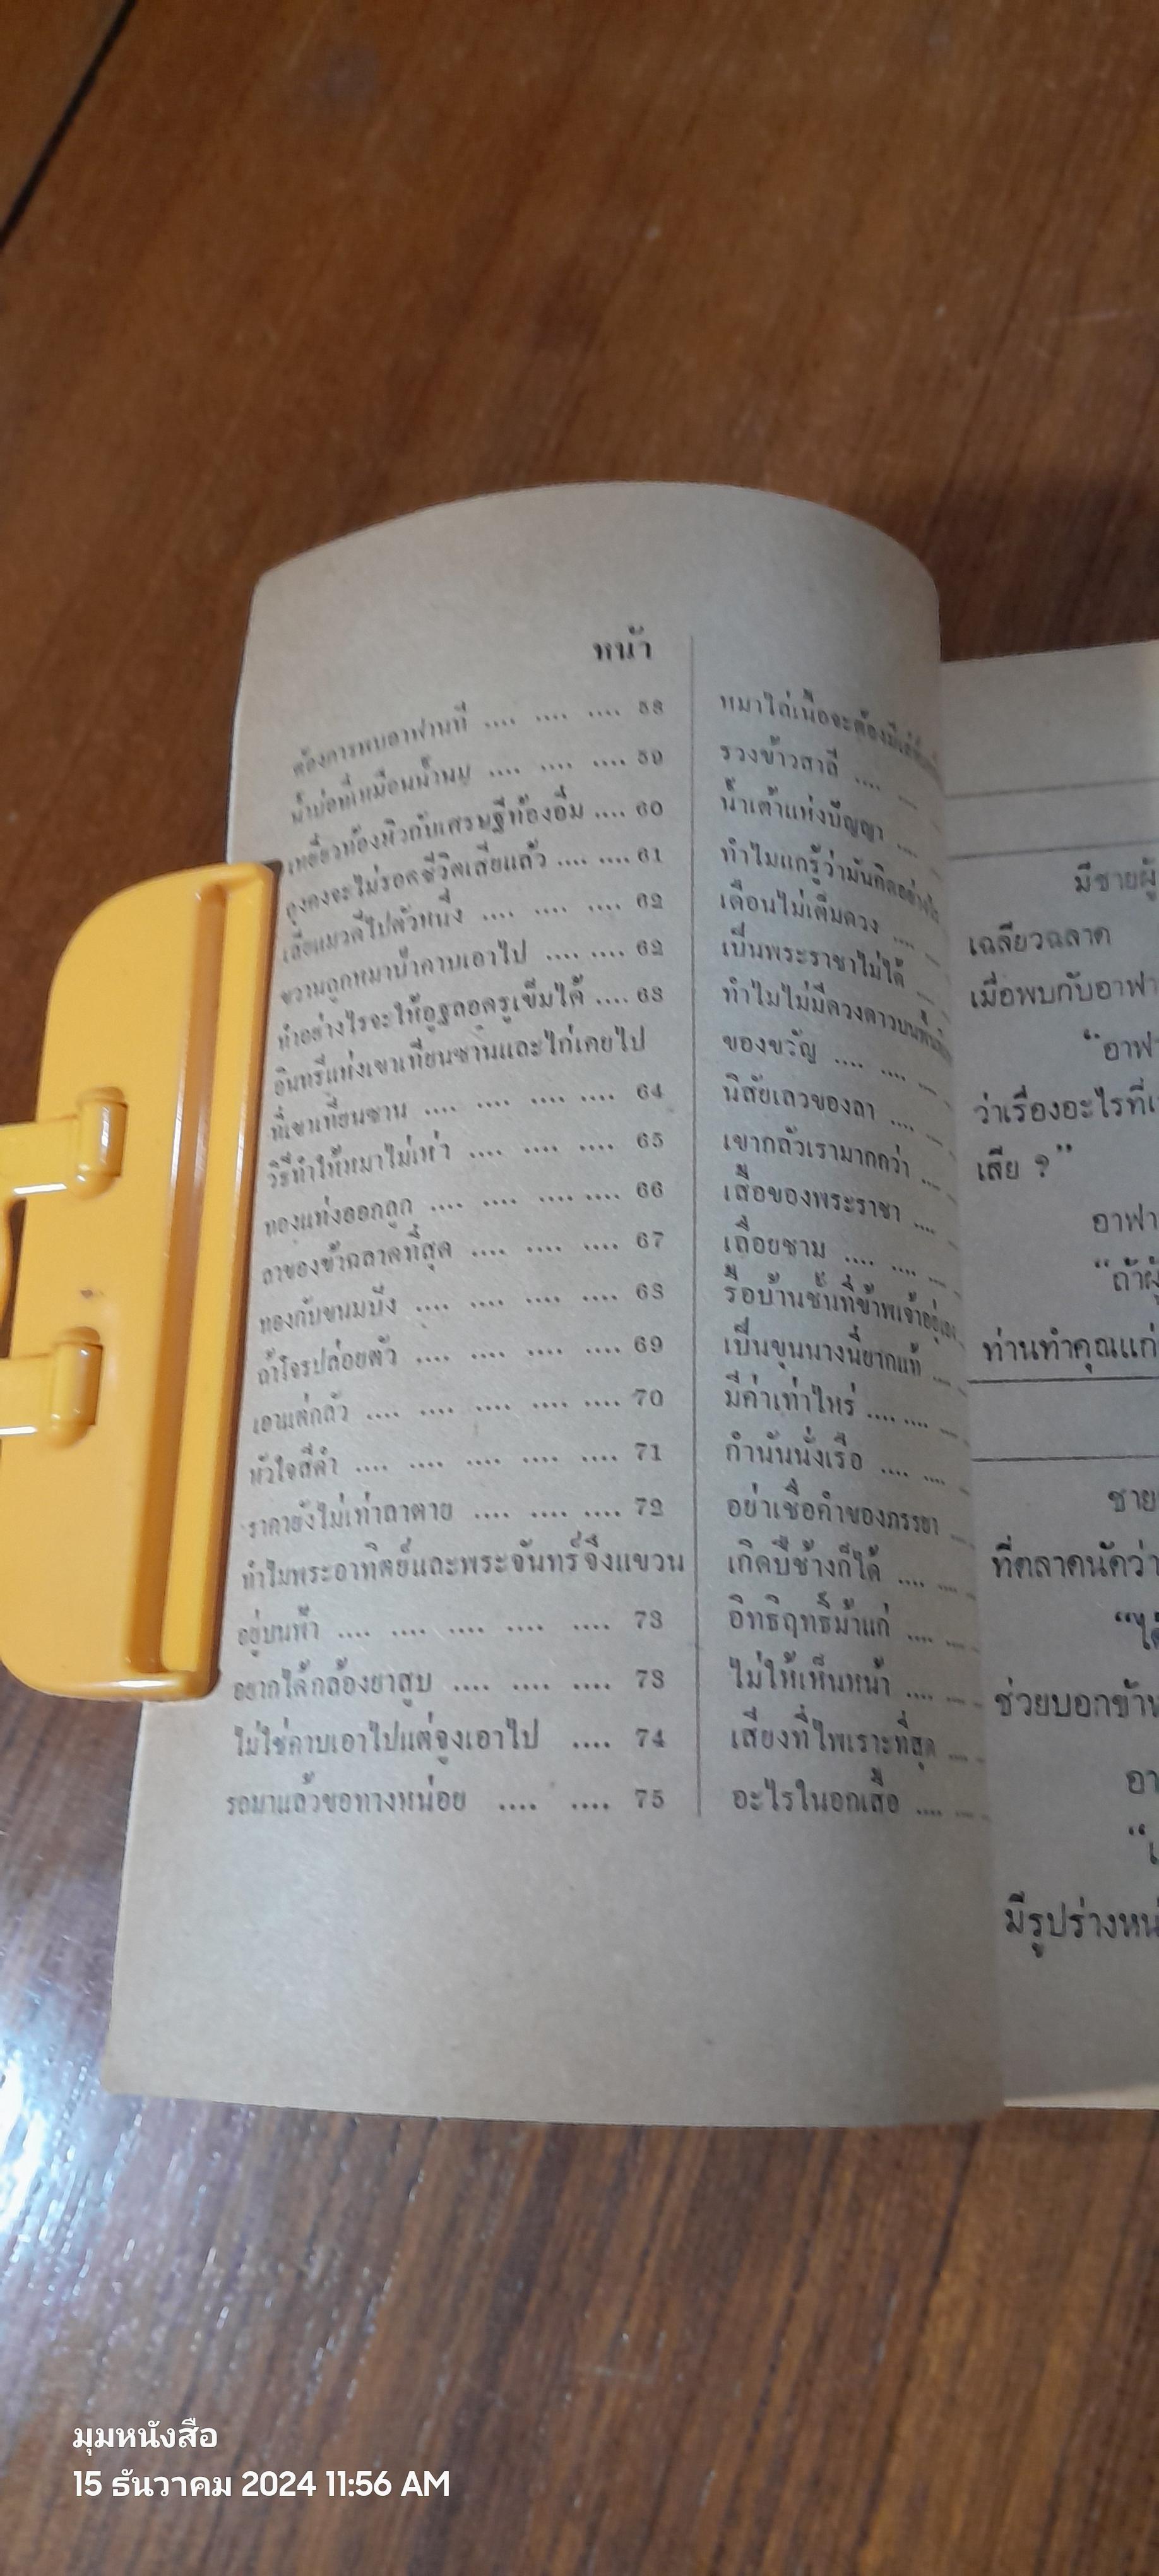 หน้า
ต้องการพบอาฟานที .... .... .... 58
น้ำบ่อที่เหมือนน้ำนม .... .... .... 59
เหยี่ยวท้องหิวกับเศรษฐีท้องอิ่ม .... 60
คงจะไม่รอดชีวิตเสียแล้ว .... .... 61
เสือแมวดีไปตัวหนึ่ง .... .... .... 62
ขวานถูกหมาป่าคาบเอาไป .... .... 62
ทำอย่างไรจะให้อูฐลอดรูเข็มได้ .... 63
อินทรีแห่งเขาเทียนซานและไก่เคยไป
ที่เขาเทียนซาน .... .... .... .... 64
วิธีทำให้หมาไม่เห่า .... .... .... 65
ทองแท่งออกลูก .... .... .... .... 66
ลาของข้าฉลาดที่สุด .... .... .... 67
ทองกับขนมปัง .... .... .... .... 68
ถ้าโจรปล่อยตัว .... .... .... .... 69
เอาแต่กลัว .... .... .... .... .... 70
หัวใจสีดำ .... .... .... .... .... 71
ราคายังไม่เท่าลาตาย .... .... .... 72
ทำไมพระอาทิตย์และพระจันทร์จึงแขวน
อยู่บนฟ้า .... .... .... .... .... 73
อยากได้กล้องยาสูบ .... .... .... 73
ไม่ใช่คาบเอาไปแต่จูงเอาไป .... 74
รอมาแล้วขอทางหน่อย .... .... 75
หมาไล่เนื้อจะต้องมี
รวงข้าวสาลี .... ....
น้ำเต้าแห่งปัญญา ....
ทำไมแกรู้ว่ามันคิดอย่างไร
เดือนไม่เต็มดวง ....
เป็นพระราชาไม่ได้ ....
ทำไมไม่มีดวงดาวบน
ของขวัญ .... .... ....
นิสัยเลวของลา .... ....
เขากลัวเรามากกว่า ....
เสือของพระราชา ....
เถือยชาม .... .... ....
รื้อบ้านชั้นที่ข้าพเจ้าอยู่เอง
เป็นขุนนางนี้ยากแท้ ....
มีค่าเท่าไหร่ .... .... ....
กำนันนั่งเรือ .... ....
อย่าเชื่อคำของภรรยา ....
เกิดปีช้างก็ได้ .... ....
อิทธิฤทธิ์ม้าแก่ .... ....
ไม่ให้เห็นหน้า .... ....
เสียงที่ไพเราะที่สุด .... ..
อะไรในอกเสื้อ .... ....
มีชายผู้
เฉลียวฉลาด
เมื่อพบกับอาฟา
“อาฟา
ว่าเรื่องอะไรที่
เสีย ?”
อาฟา
“ถ้าผู้
ท่านทำคุณแก่
ชาย
ที่ตลาดนัดว่า
“ได้
ช่วยบอกข้าพ
อา
“เ
มีรูปร่างหน
มุมหนังสือ
15 ธันวาคม 2024 11:56 AM